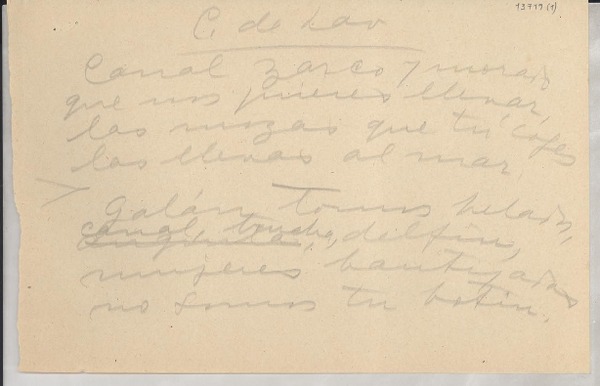 13719 (1)
C. de Lav
Canal zarco y morado
que nos quieres llevar,
las mozas que tú coges
las llevas al mar.
Galán, tomus helado,
canal, trucha, delfín,
mujeres bautizadas
no somos tu botín.